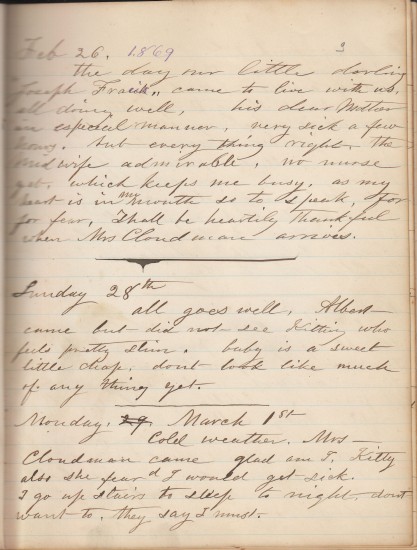 Feb 26. 1869
3
the day our little darling
Joseph Frank,, came to live with us,
all doing well, his dear Mother
in especial manner, very sick a few
hours. but every thing right, the
midwife admirable, no nurse
yet, which keeps me busy, as my
heart is in my mouth so to speak, for
for fear, I shall be heartily thankful
when Mrs Cloudman arrives.
Sunday 28th
all goes well, Albert
came but did not see Kitty, who
feels pretty slim. baby is a sweet
little chap, dont look like much
of any thing yet.
Monday, 29 March 1st
Cold weather. Mrs
Cloudman came glad am I, Kitty
also she feard I would get sick.
I go up stairs to sleep to night, dont
want to, they say I must.